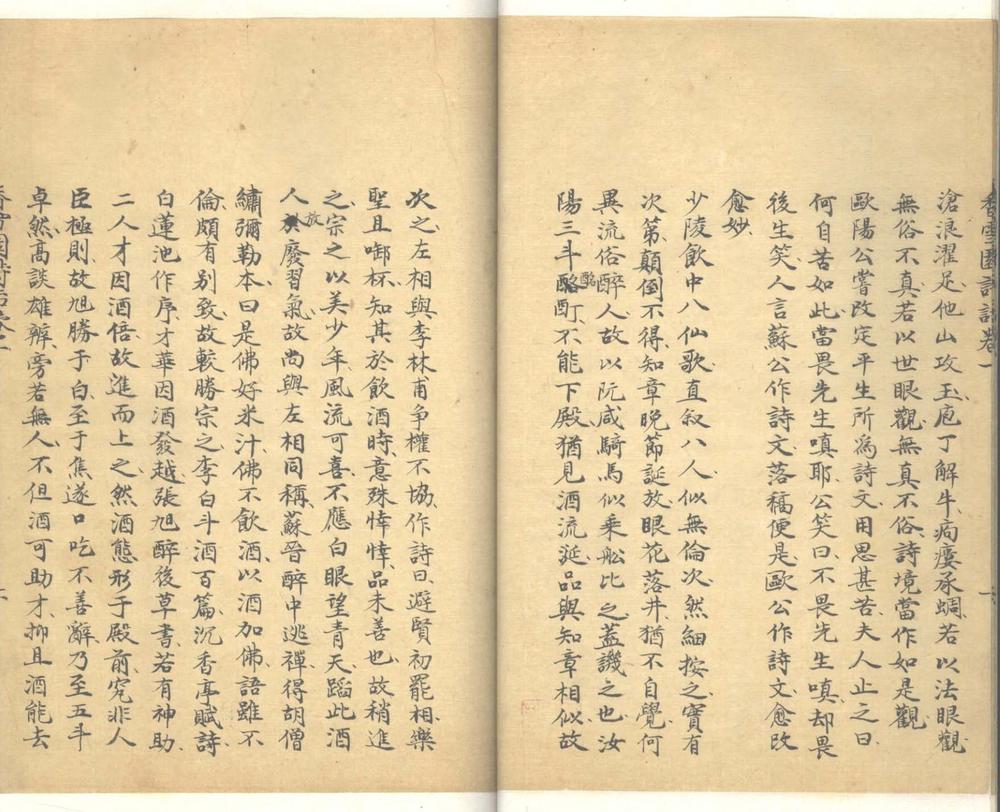 香雪園詩話卷一
滄浪濯足他山攻玉庖丁解牛痀瘻承蜩若以法眼觀
無俗不真若以世眼觀無真不俗詩境當作如是觀
歐陽公嘗改定平生所為詩文用思甚苦夫人止之曰
何自苦如此當畏先生嗔耶公笑曰不畏先生嗔却畏
後生笑人言蘇公作詩文落稿便是歐公作詩文愈改
愈妙
少陵飲中八仙歌直叙八人似無倫次然細按之實有
次第顛倒不得知章晚節誕放眼花落井猶不自覺何
異流俗醉人故以阮咸騎馬似乘舩比之蓋譏之也汝
陽三斗酩酊不能下殿猶見酒流涎品與知章相似故
次之左相與李林甫爭權不協作詩曰避賢初罷相樂
聖且啣杯知其於飲酒時意殊悻悻品未善也故稍進
之宗之以美少年風流可喜不應白眼望青天蹈此酒
人放廢習氣故尚與左相同稱蘇晉醉中逃禪得胡僧
繡彌勒本曰是佛好米汁佛不飲酒以酒加佛語雖不
倫頗有别致故較勝宗之李白斗酒百篇沉香亭賦詩
白蓮池作序才華因酒發越張旭醉後草書若有神助
二人才因酒倍故進而上之然酒態形于殿前究非人
臣極則故旭勝于白至于焦遂口吃不善辭乃至五斗
卓然高談雄辨旁若無人不但酒可助才抑且酒能去